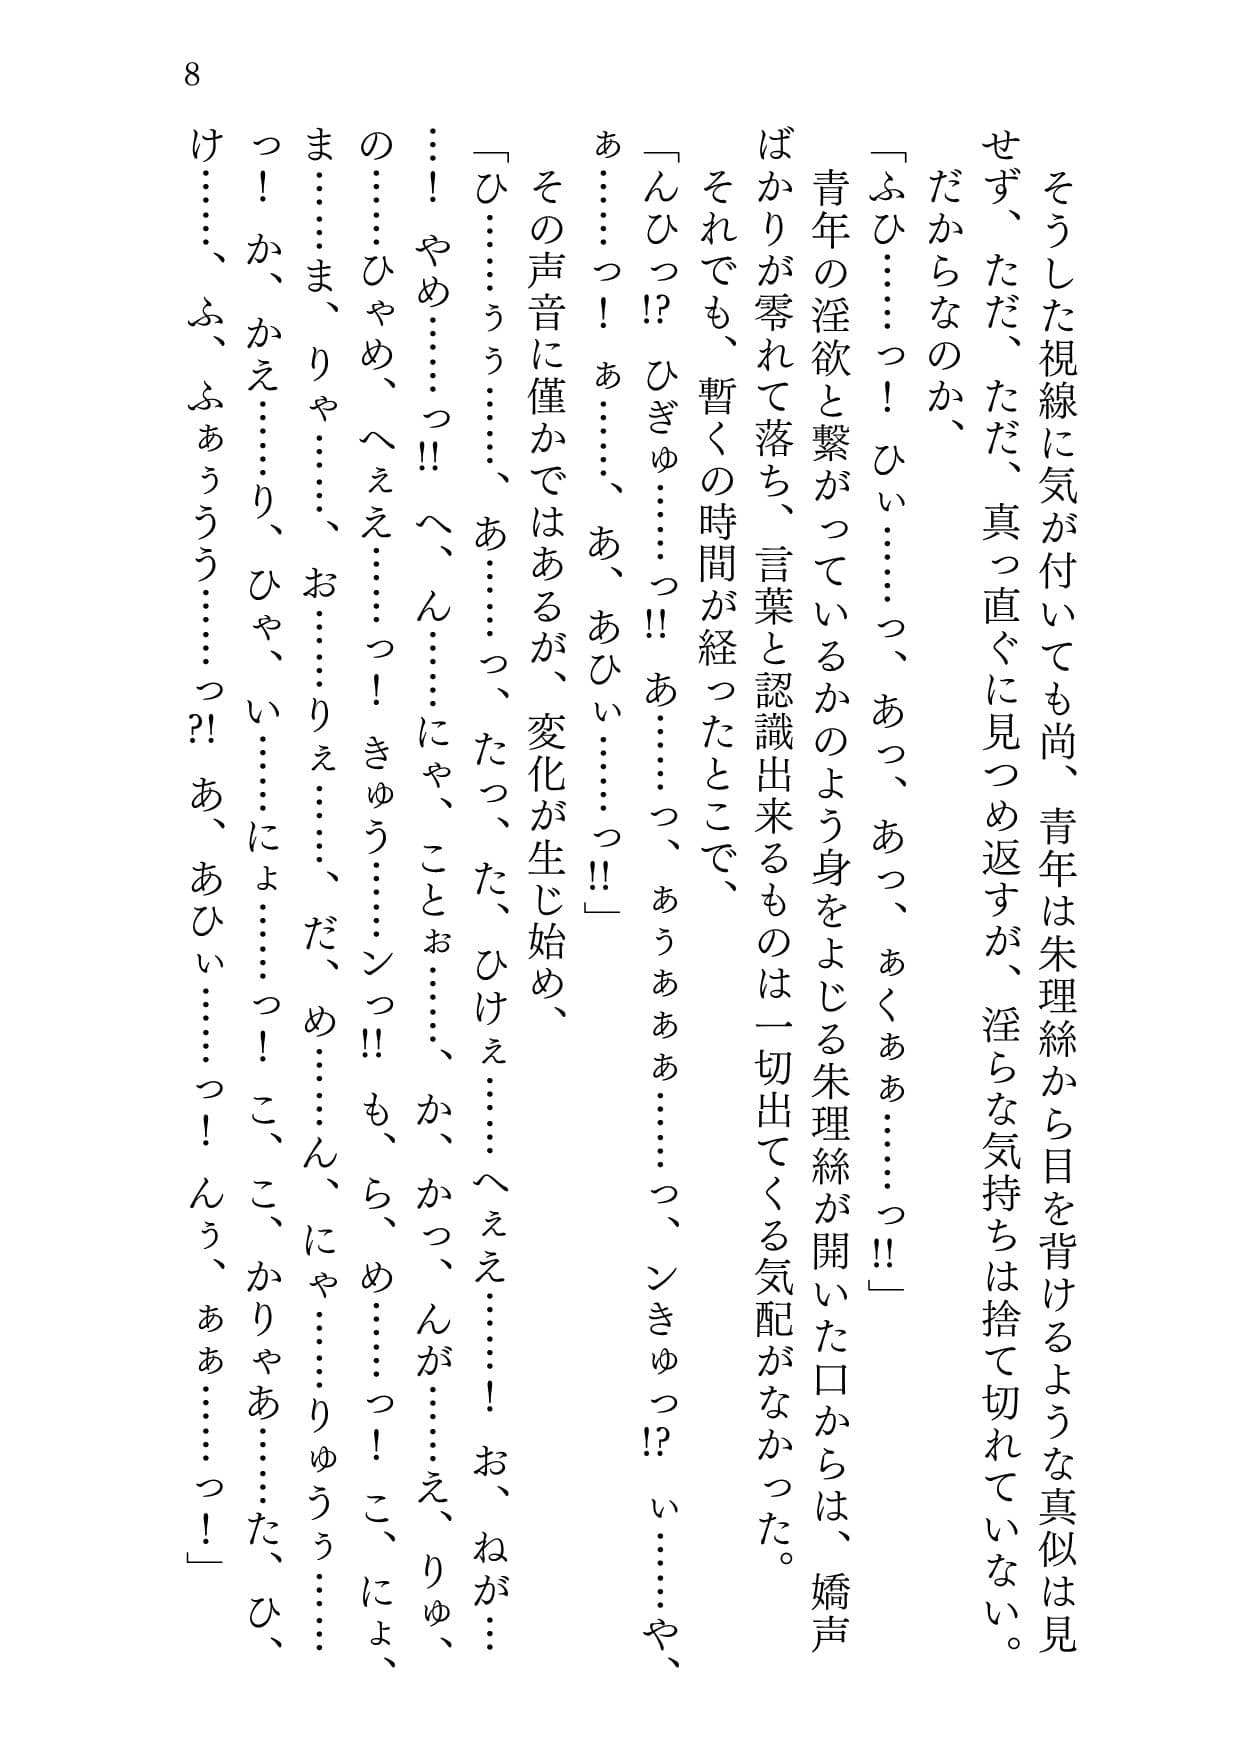 8
　そうした視線に気が付いても尚、青年は朱理絲から目を背けるような真似は見
せず、ただ、ただ、真っ直ぐに見つめ返すが、淫らな気持ちは捨て切れていない。
　だからなのか、
「ふひ……っ！ ひぃ……っ、あっ、あっ、ぁくぁぁ……っ!!」
　青年の淫欲と繋がっているかのよう身をよじる朱理絲が開いた口からは、嬌声
ばかりが零れて落ち、言葉と認識出来るものは一切出てくる気配がなかった。
　それでも、暫くの時間が経ったとこで、
「んひっ!?　ひぎゅ……っ!!　あ……っ、ぁぅぁぁぁ……っ、ンきゅっ!?　ぃ……や、
ぁ……っ！ ぁ……、あ、あひぃ……っ!!」
　その声音に僅かではあるが、変化が生じ始め、
「ひ……ぅぅ……、あ……っ、たっ、た、ひけぇ……へぇえ……！ お、ねが…
…！ やめ……っ!!　へ、ん……にゃ、ことぉ……、か、かっ、んが……え、りゅ、
の……ひゃめ、へぇえ……っ！ きゅう……ンっ!!　も、ら、め……っ！ こ、にょ、
ま……ま、りゃ……、お……りぇ……、だ、め……ん、にゃ……りゅうぅ……
っ！ か、かえ……り、ひゃ、い……にょ……っ！ こ、こ、かりゃあ……た、ひ、
け……、ふ、ふぁぅうう……っ?!　あ、あひぃ……っ！ んぅ、ぁぁ……っ！」